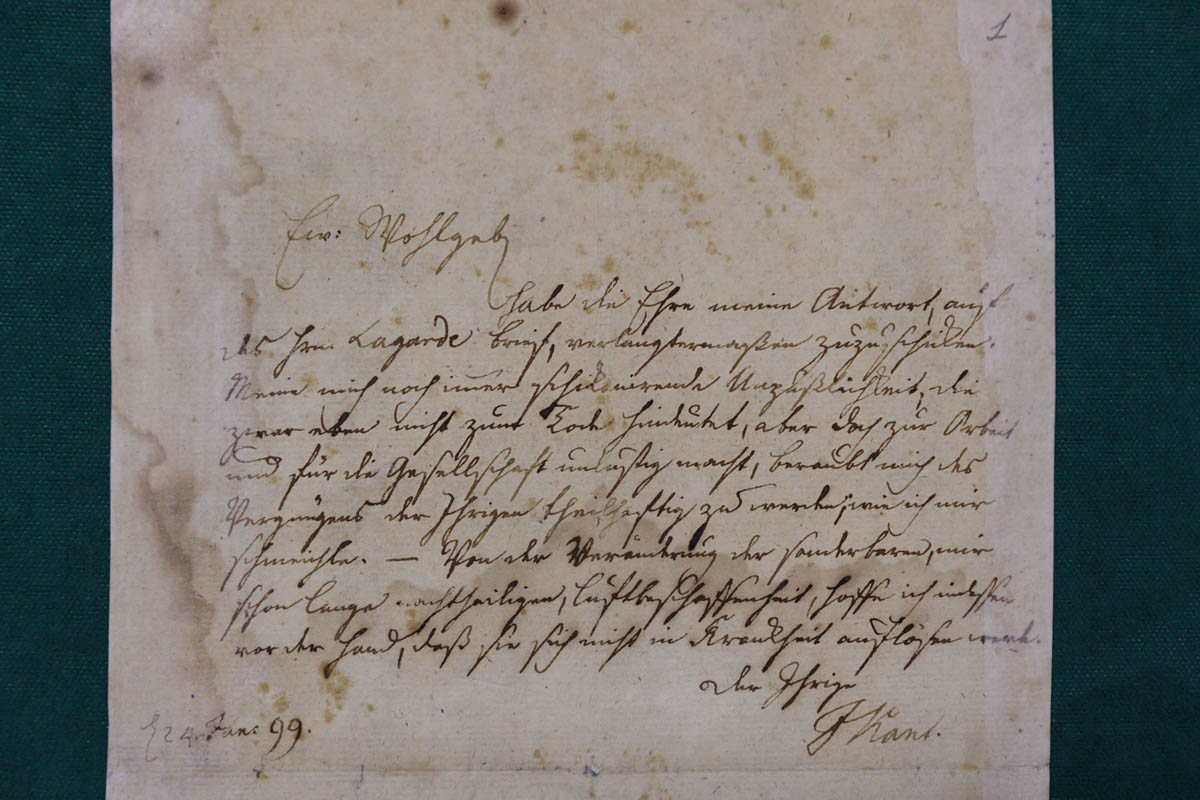 1
Ew: Wohlgeb
habe die Ehre meine Antwort, auf
des Hrn. Lagarde Brief, verlangtermaßen zuzuschicken.
Meine mich noch immer Unpäßlichkeit, die
zwar eben nicht zum Tode hindeutet, aber doch zur Arbeit
und für die Gesellschaft unlustig macht, beraubt mich des
Vergnügens der Ihrigen theilhaftig zu werden, wie ich mir
schmeichle. — Von der Veränderung der sonderbaren, mir
schon lange nachtheiligen, Luftbeschaffenheit, hoffe ich indessen
vor der Hand, daß sie sich nicht in Krankheit auflösen werde.
Der Ihrige
I Kant.
24. Jan: 99.